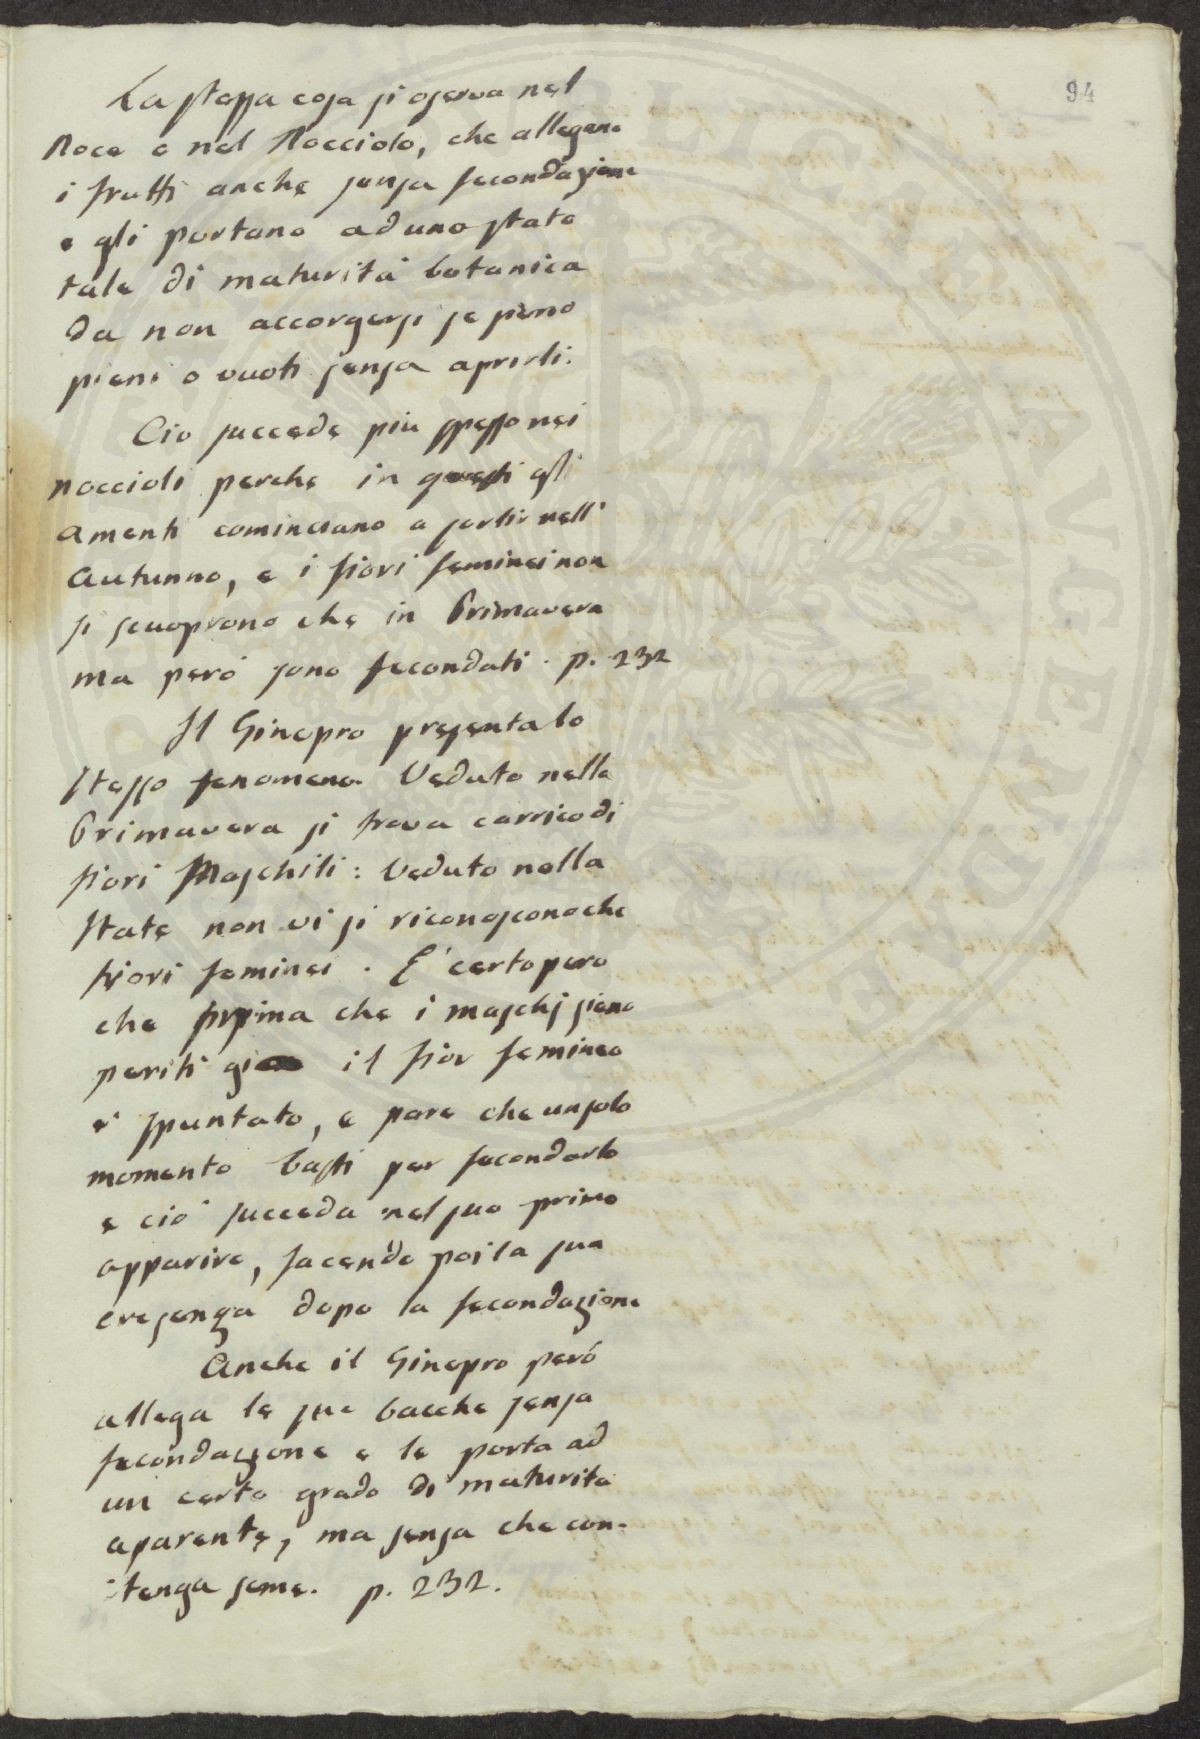 94
La stessa cosa si oserva nel
Noce e nel Nocciolo, che allegano
i frutti anche senza fecondazione
e gli portano ad uno stato
tale di maturità botanica
da non accorgersi se sieno
pieni o vuoti senza aprirli.
Ciò succede più spesso nei
noccioli perche in questi gli
amenti cominciano a sortir nell'
Autunno, e i fiori feminei non
si scuoprono che in Primavera
ma però sono fecondati. p. 232
Il Ginepro presenta lo
stesso fenomeno. Veduto nella
Primavera si trova carrico di
fiori Maschili: Veduto nella
state non vi si riconoscono che
fiori feminei. E' certo pero
che prima che i maschj sieno
periti già il fior femineo
e' spuntato, e pare che un solo
momento basti per fecondarlo
e ciò succeda nel suo primo
apparire, facendo poi la sua
cresenza dopo la fecondazione
Anche il Ginepro però
allega le sue bacche senza
fecondazione e le porta ad
un certo grado di maturita
aparente, ma senza che con-
tenga seme. p. 232.